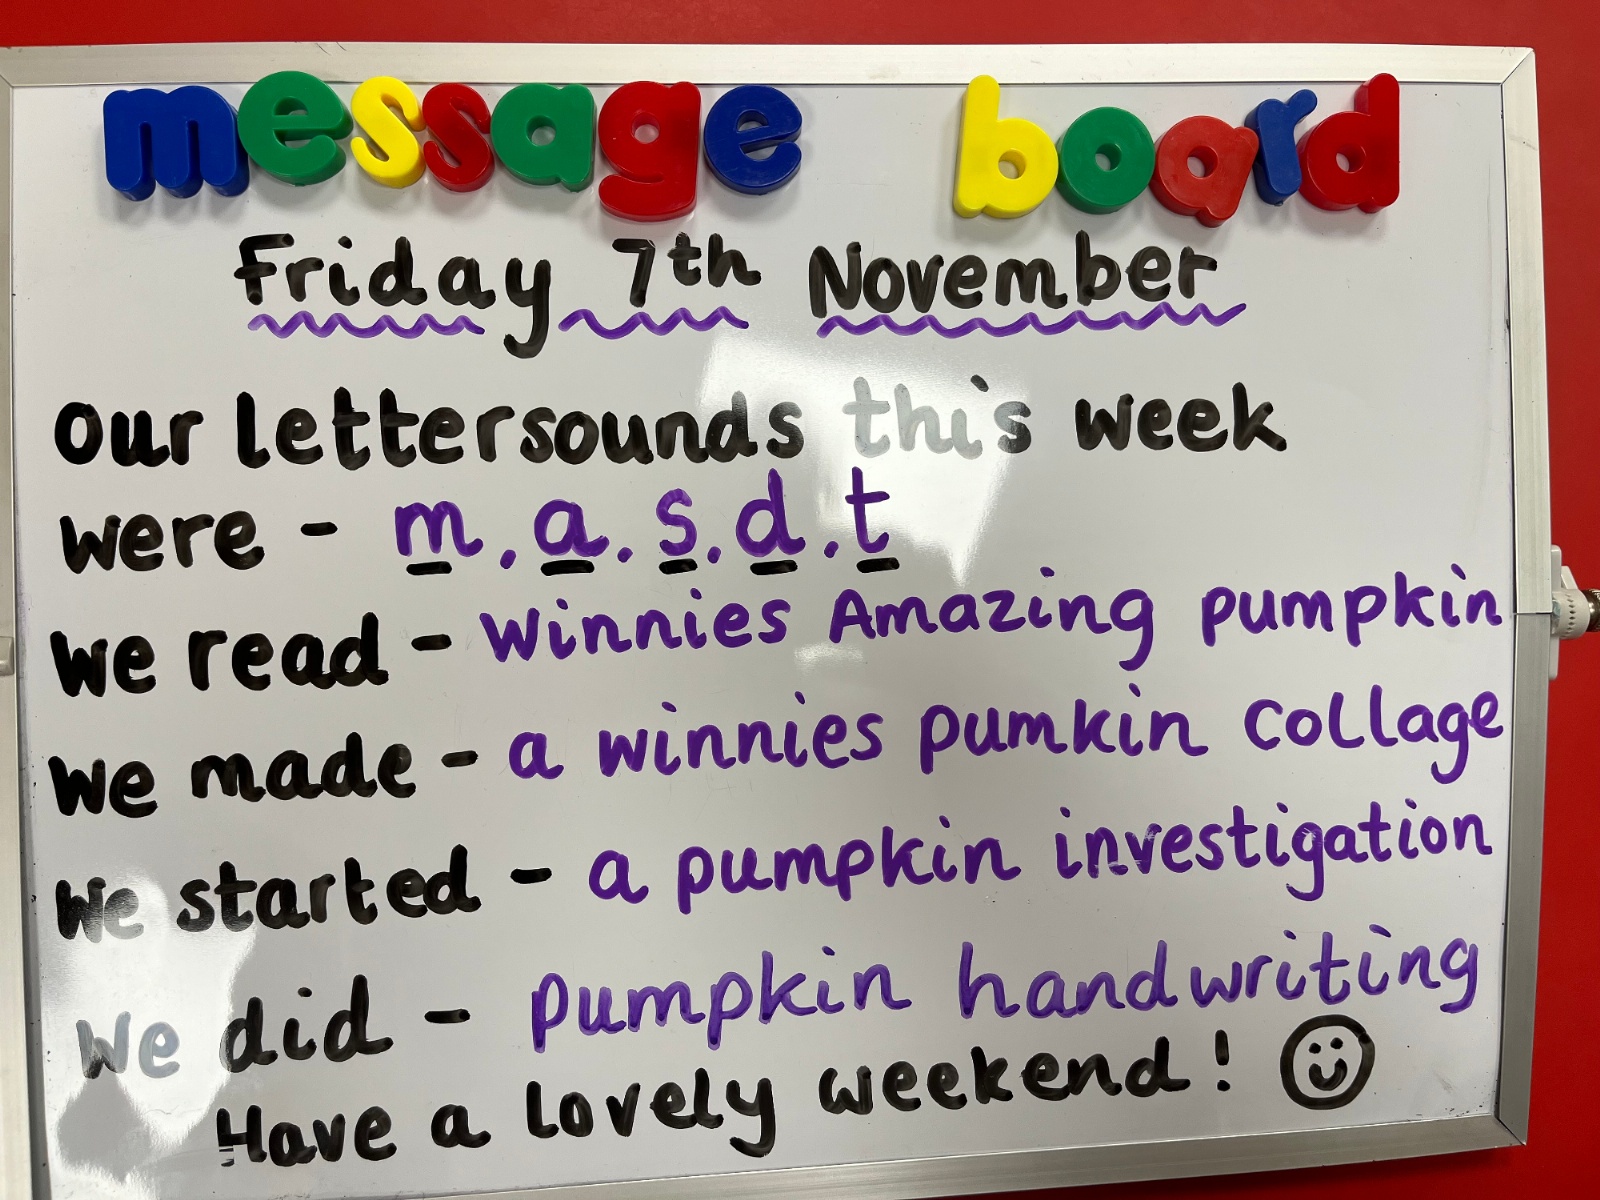 message board
Friday 7th November
Our lettersounds this week
were - m, a, s, d, t
We read - Winnies Amazing pumpkin
We made - a winnies pumkin collage
We started - a pumpkin investigation
We did - pumpkin handwriting
Have a lovely weekend!